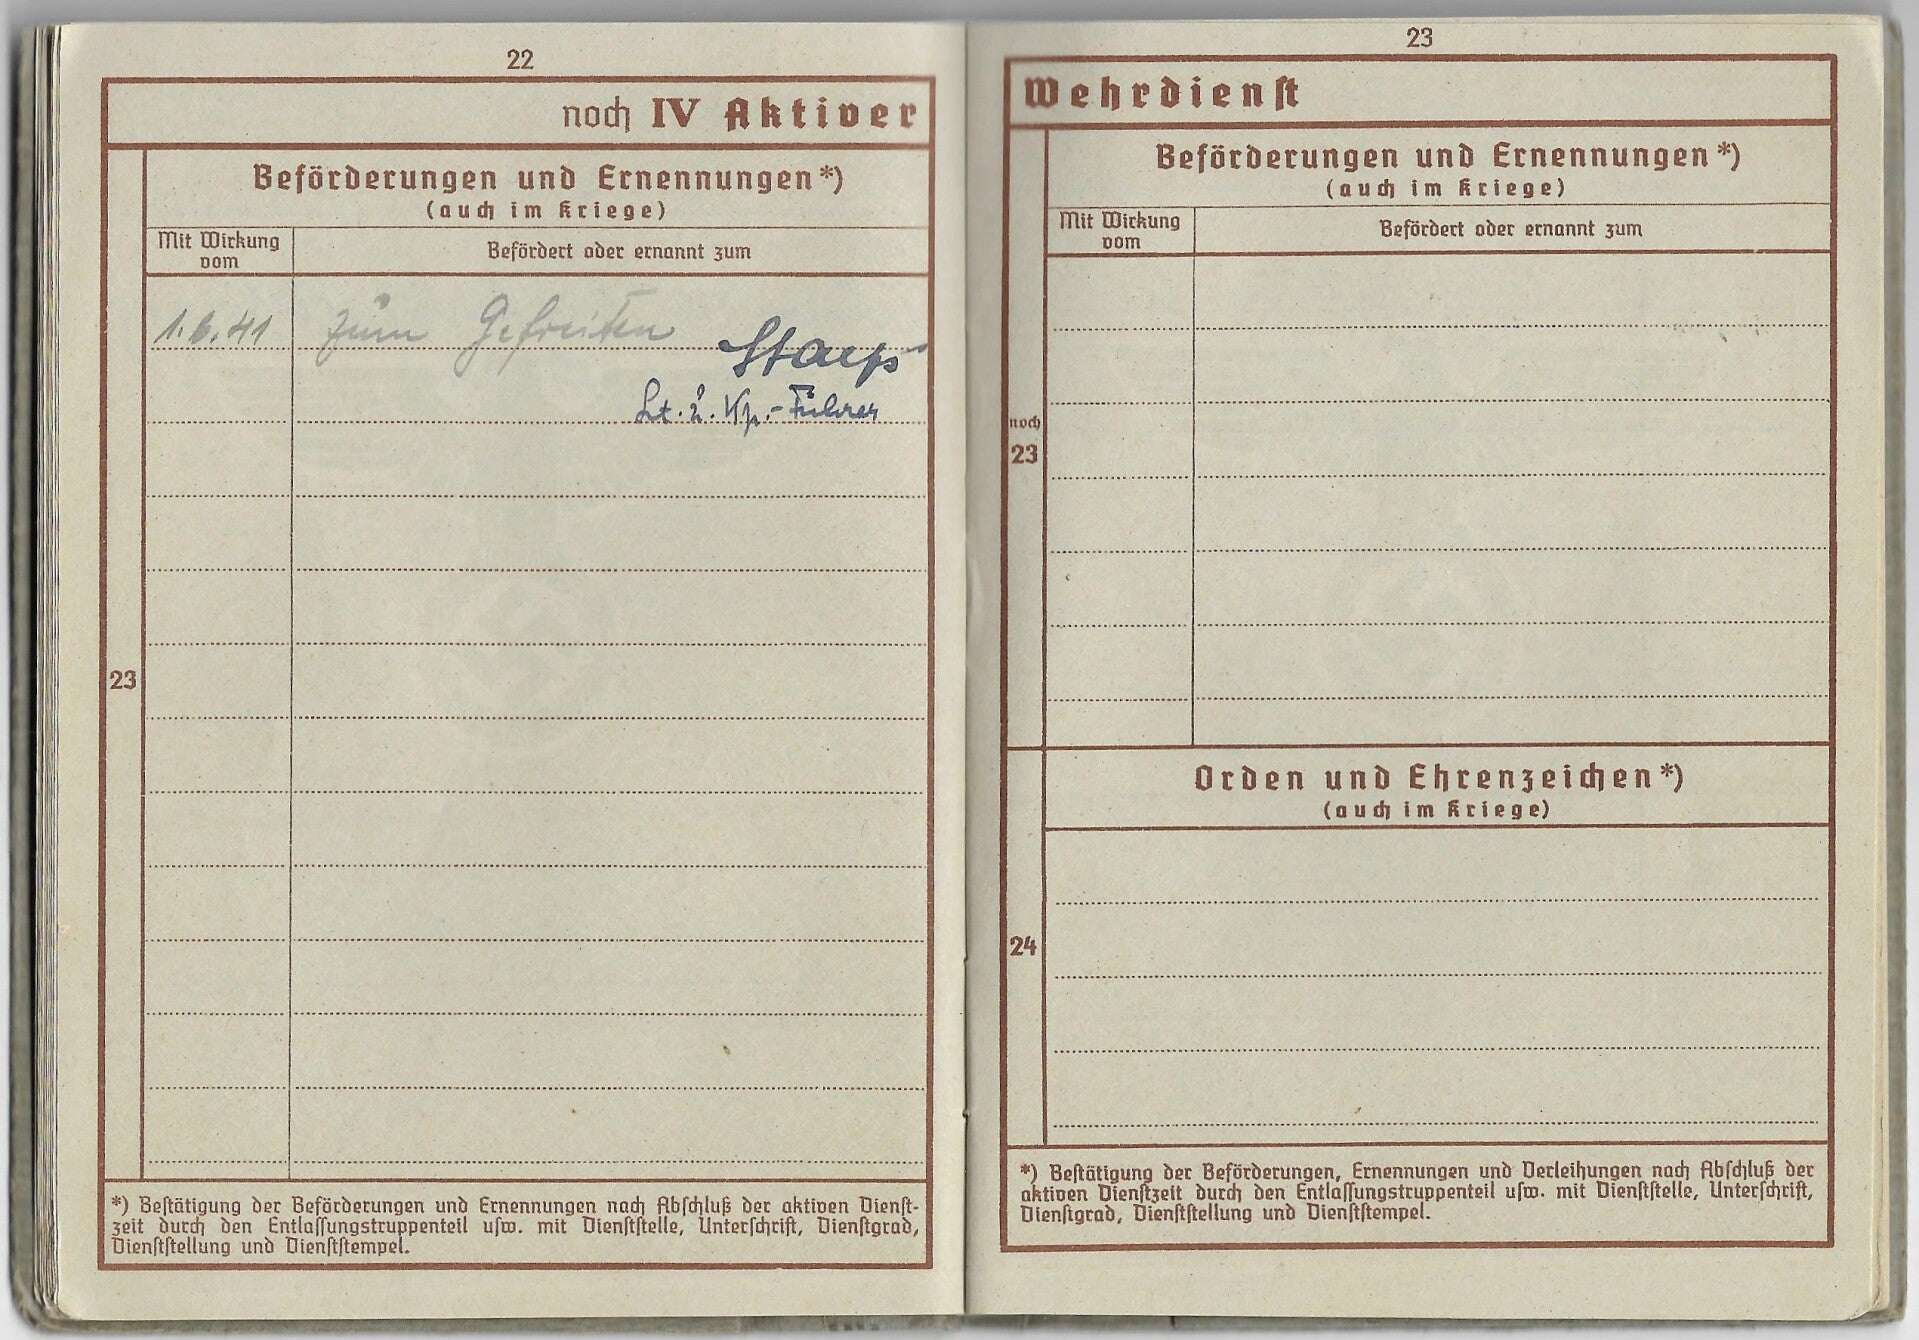 22
noch IV Aktiver
Beförderungen und Ernennungen*)
(auch im Kriege)
Mit Wirkung
vom
Befördert oder ernannt zum
1.6.41 zum Gefreiten
Lt. u. Kp.-Führer
23
*) Bestätigung der Beförderungen und Ernennungen nach Abschluß der aktiven Dienst-
zeit durch den Entlassungstruppenteil usw. mit Dienststelle, Unterschrift, Dienstgrad,
Dienststellung und Dienststempel.
23
Wehrdienst
Beförderungen und Ernennungen*)
(auch im Kriege)
Mit Wirkung
vom
Befördert oder ernannt zum
noch
23
Orden und Ehrenzeichen*)
(auch im Kriege)
24
*) Bestätigung der Beförderungen, Ernennungen und Verleihungen nach Abschluß der
aktiven Dienstzeit durch den Entlassungstruppenteil usw. mit Dienststelle, Unterschrift,
Dienstgrad, Dienststellung und Dienststempel.